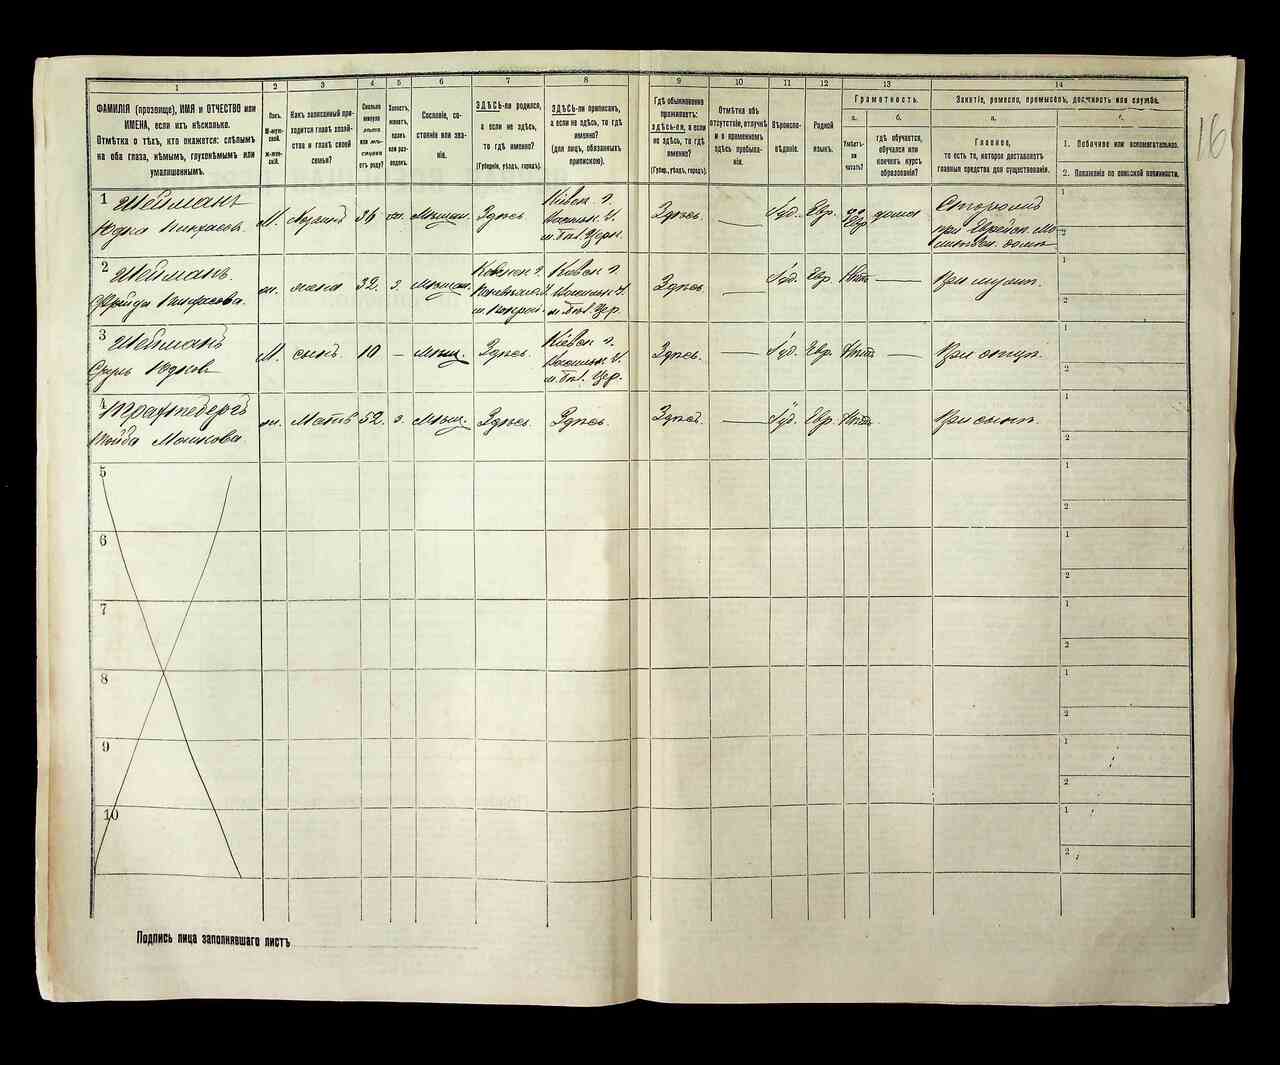 1 2 3 4 5 6 7 8 9 10 11 12 13 14
ФАМИЛІЯ (прозвище), ИМЯ и ОТЧЕСТВО или
ИМЕНА, если ихъ нѣсколько.
Отмѣтка о тѣхъ, кто окажется: слѣпымъ
на оба глаза, нѣмымъ, глухонѣмымъ или
умалишеннымъ.
Полъ.
М-мужской.
Ж-женскій.
Какъ записанный приходится
главѣ хозяйства
и главѣ своей
семьи?
Сколько
минуло
лѣтъ
или мѣсяцевъ
отъ роду?
Холостъ,
женатъ,
вдовъ
или разведенъ.
Сословіе, состояніе
или званіе.
ЗДѢСЬ-ли родился,
а если не здѣсь,
то гдѣ именно?
(Губернія, уѣздъ, городъ).
ЗДѢСЬ-ли приписанъ,
а если не здѣсь, то гдѣ
именно?
(для лицъ, обязанныхъ
припискою).
Гдѣ обыкновенно
проживаетъ:
ЗДѢСЬ-ЛИ, а если
не здѣсь, то гдѣ
именно?
(Губер., уѣздъ, городъ).
Отмѣтка объ
отсутствіи, отлучкѣ
и о временномъ
здѣсь пребываніи.
Вѣроисповѣданіе.
Родной
языкъ.
Грамотность.
а.
Умѣетъ-ли
читать?
б.
гдѣ обучается,
обучался или
кончилъ курсъ
образованія?
Занятіе, ремесло, промыселъ, должность или служба.
а.
Главное,
то есть то, которое доставляетъ
главныя средства для существованія.
б.
1. Побочное или вспомогательное.
2. Положеніе по воинской повинности.
16
1 Шейманъ
Юдка Пинхасовъ
М. 34 Мѣщан. Здѣсь
Кіевск г.
Здѣсь. — Іуд. Евр. да Евр дома
Сторожъ
при Еврейск. Мо
1
2
2 Шейманъ
Фрейда Пинхасова
жена 32 з. мѣщан.
Ковенск г.
Здѣсь. — Іуд. Евр Нѣтъ — При мужѣ.
1
2
3 Шейманъ
М. сынъ. 10 — мѣщ. Здѣсь.
Кіевск г.
Здѣсь. — Іуд. Евр. Нѣтъ — При отцѣ.
1
2
4
Мошкова
Мать 52. з. Мѣщ. Здѣсь. Здѣсь. Здѣсь. — Іуд. Евр. Нѣтъ При сынѣ.
1
2
5
1
2
6
1
2
7
1
2
8
1
2
9
1
2
10
1
2
Подпись лица заполнявшаго листъ